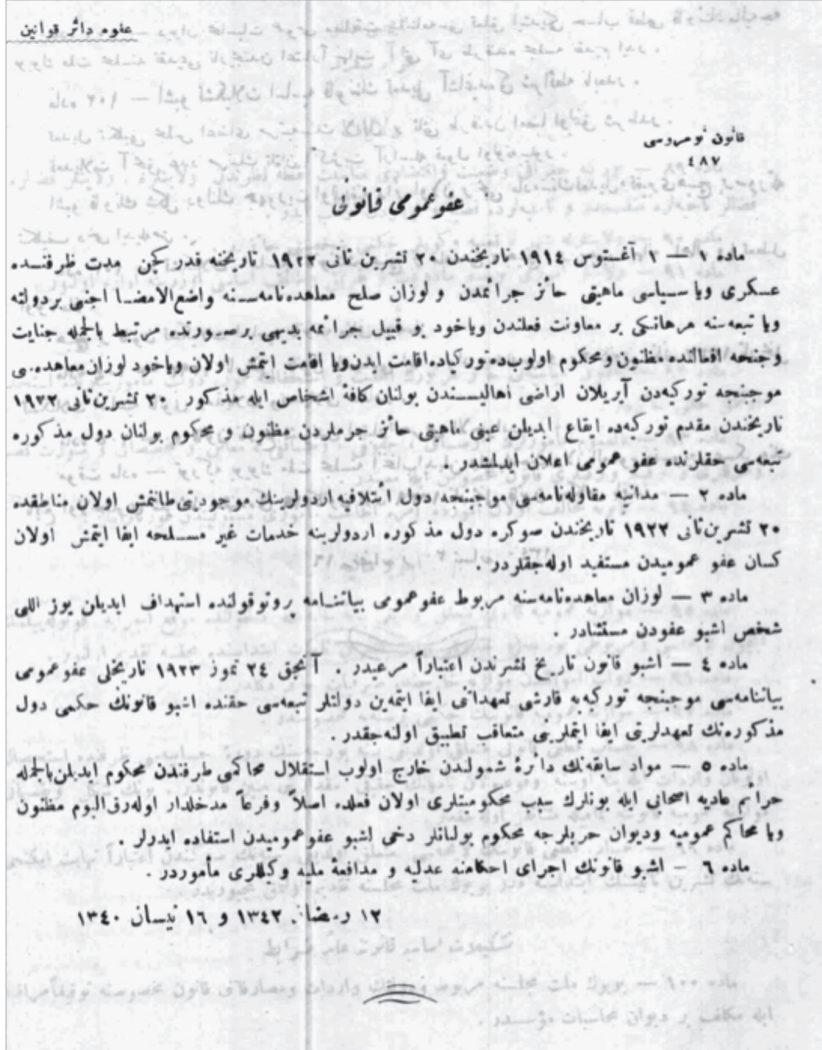 عفوه دائر قوانين
قانون نومروسى
٤٨٧
عفو عمومى قانونى
ماده ١ — ١ آغستوس ١٩١٤ تاريخندن ٢٠ تشرين ثانى ١٩٢٢ تاريخنه قدر كچن مدت ظرفنده
عسكرى ويا سياسى ماهيتى حائز جرائمدن و لوزان صلح معاهده‌نامه‌سنه واضع الامضا اجنبى بر دولته
ويا تبعه‌سنه هر هانكى بر معاونت فعلندن وياخود بو قبيل جرائمه بديهى بر صورتده مرتبط بالجمله جنايت
وجنحه افعالنده مظنون ومحكوم اولوب‌ده توركياده اقامت ايدن ويا اقامت ايتمش اولان وياخود لوزان معاهده‌سى
موجبنجه توركيه‌دن آيريلان اراضى اهاليسندن بولنان كافهٔ اشخاص ايله مذكور ٢٠ تشرين ثانى ١٩٢٢
تاريخندن مقدم توركيه‌ده ايقاع ايديلن عينى ماهيتى حائز جرملردن مظنون و محكوم بولنان دول مذكوره
تبعه‌سى حقلرنده عفو عمومى اعلان ايدلمشدر .
ماده ٢ — مدانيه مقاوله‌نامه‌سى موجبنجه دول ائتلافيه اردولرينك موجوديتى طانتمش اولان مناطقده
٢٠ تشرين ثانى ١٩٢٢ تاريخندن صوكره دول مذكوره اردولرينه خدمات غير مسلحه ايفا ايتمش اولان
كسان عفو عموميدن مستفيد اوله‌جقلردر .
ماده ٣ — لوزان معاهده‌نامه‌سنه مربوط عفو عمومى بياننامه و پروتوقولنده استهداف ايديلن يوز اللى
شخص اشبو عفودن مستثنادر .
ماده ٤ — اشبو قانون تاريخ نشرندن اعتباراً مرعيدر . آنجق ٢٤ تموز ١٩٢٣ تاريخلى عفو عمومى
بياننامه‌سى موجبنجه توركيه‌يه قارشى تعهداتى ايفا ايتمه‌ين دولتلر تبعه‌سى حقنده اشبو قانونك حكمى دول
مذكوره‌نك تعهدلرينى ايفا ايتملرينى متعاقب تطبيق اوله‌جقدر .
ماده ٥ — مواد سابقه‌نك دائرهٔ شمولندن خارج اولوب استقلال محاكمى طرفندن محكوم ايديلن بالجمله
جرائم عاديه اصحابى ايله بونلرك سبب محكوميتلرى اولان فعلده اصلاً وفرعاً مدخلدار اوله‌رق اليوم مظنون
ويا محاكم عموميه وديوان حربلرجه محكوم بولنانلر دخى اشبو عفو عموميدن استفاده ايدرلر .
ماده ٦ — اشبو قانونك اجراى احكامنه عدليه و مدافعهٔ مليه وكيللرى مأموردر .
١٢ رمضان ١٣٤٢ و ١٦ نيسان ١٣٤٠